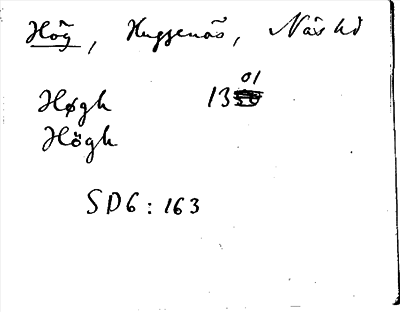 Hög, Huggenäs, Näs hd
Høgh 1301
Högh
SD6: 163